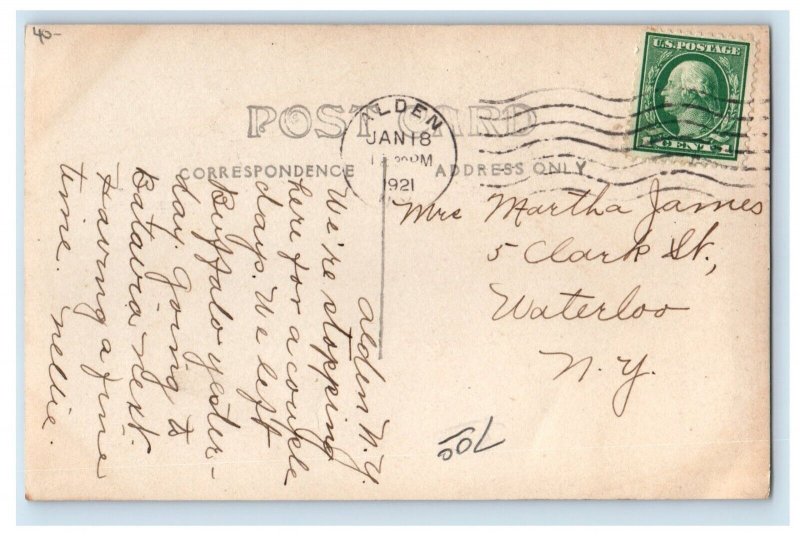 40-
U.S. POSTAGE
1 CENT 1
POST CARD
ALDEN
JAN 18
PM
1921
CORRESPONDENCE
ADDRESS ONLY
Mrs Martha James
5 Clark St,
Waterloo
N.Y.
Alden N.Y.
We're stopping
here for a couple
days. We left
Buffalo yester-
day. Going to
Batavia next.
Having a fine
time. Nellie.
700